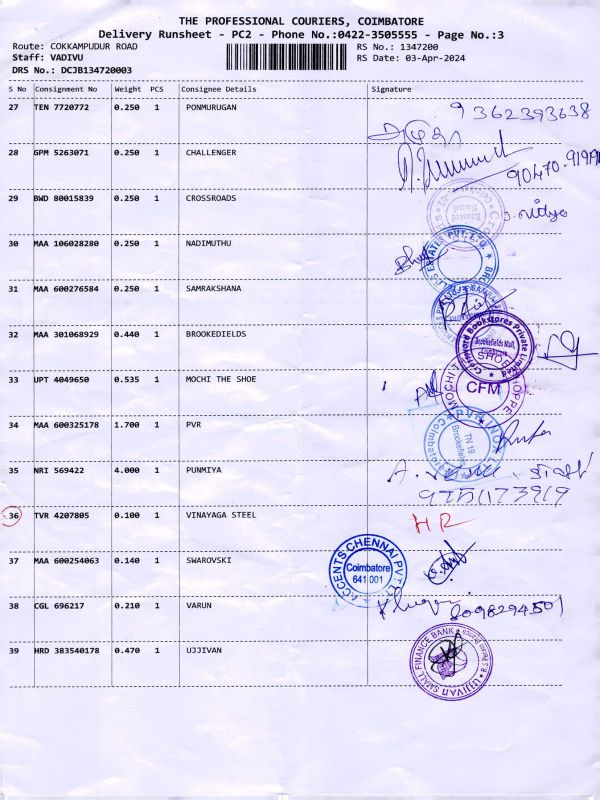 THE PROFESSIONAL COURIERS, COIMBATORE
Delivery Runsheet - PC2 - Phone No.:0422-3505555 - Page No.:3
Route: COKKAMPUDUR ROAD RS No.: 1347200
Staff: VADIVU RS Date: 03-Apr-2024
DRS No.: DCJB134720003
S No Consignment No Weight PCS Consignee Details Signature
27 TEN 7720772 0.250 1 PONMURUGAN 9362393638
28 GPM 5263071 0.250 1 CHALLENGER
29 BWD 80015839 0.250 1 CROSSROADS
30 MAA 106028280 0.250 1 NADIMUTHU
31 MAA 600276584 0.250 1 SAMRAKSHANA
32 MAA 301068929 0.440 1 BROOKEDIELDS
Crossword Bookstores Private Limited
Brookefields Mall,
33 UPT 4049650 0.535 1 MOCHI THE SHOE
CFM
34 MAA 600325178 1.700 1 PVR
TN 19
Brookefields
Coimbatore
35 NRI 569422 4.000 1 PUNMIYA
36 TVR 4207805 0.100 1 VINAYAGA STEEL HR
37 MAA 600254063 0.140 1 SWAROVSKI
ACCENTS CHENNAI PVT. LTD
Coimbatore
641 001
38 CGL 696217 0.210 1 VARUN 8098294501
39 HRD 383540178 0.470 1 UJJIVAN
UJJIVAN SMALL FINANCE BANK